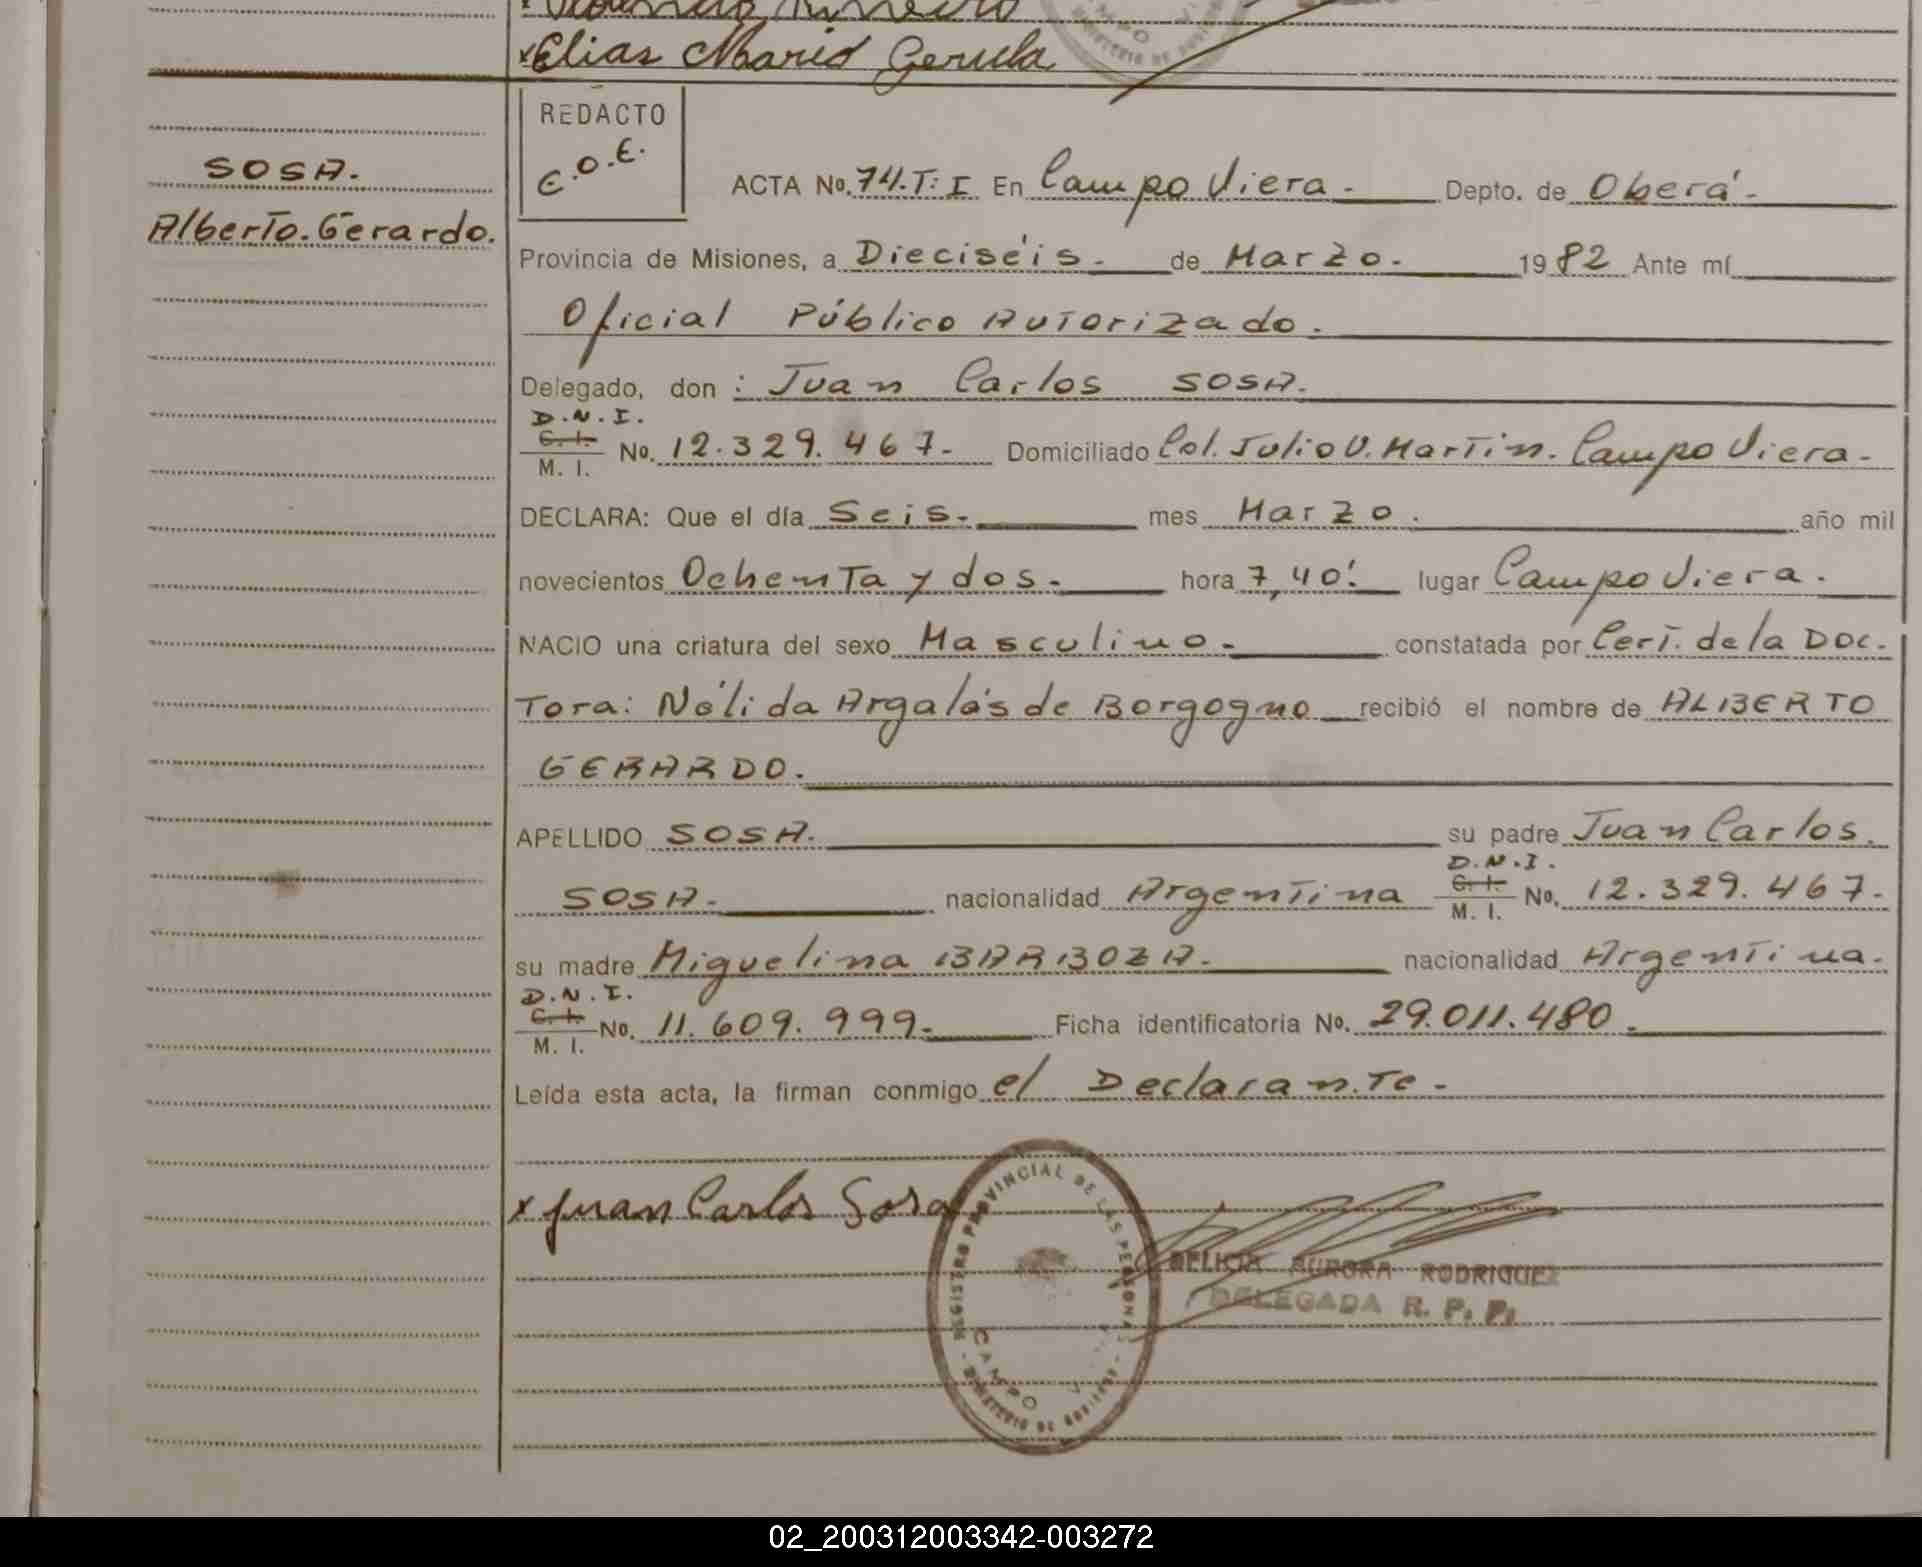 Elias Mario Geruda
REDACTO
E.O.E.
SOSA.
Alberto.Gerardo.
ACTA No. 74.T: I En Campo Viera.- Depto. de Oberá.-
Provincia de Misiones, a Dieciséis.- de Marzo.- 1982 Ante mí
Oficial Público Autorizado.
Delegado, don: Juan Carlos SOSA.
D.N.I.
C. I.
M. I.
No. 12.329.467.- Domiciliado Col. Julio U. Martin. Campo Viera.-
DECLARA: Que el día Seis.- mes Marzo. año mil
novecientos Ochenta y dos.- hora 7,40'. lugar Campo Viera.
NACIO una criatura del sexo Masculino.- constatada por Cert. de la DOC.
Tora: Nélida Argalás de Borgogno recibió el nombre de ALBERTO
GERARDO.
APELLIDO SOSA. su padre Juan Carlos.
D.N.I.
SOSA.- nacionalidad Argentina C. I. No. 12.329.467.-
M. I.
su madre Miguelina BARBOZA.- nacionalidad Argentina.
D.N.I.
C. I. No. 11.609.999.- Ficha identificatoria No. 29.011.480.-
M. I.
Leída esta acta, la firman conmigo el Declarante.-
x Juan Carlos Sosa
REGISTRO PROVINCIAL DE LAS PERSONAS
CAMPO V
MINISTERIO DE GOBIERNO
DELICIA AURORA RODRIGUEZ
DELEGADA R. P. P.
02_200312003342-003272